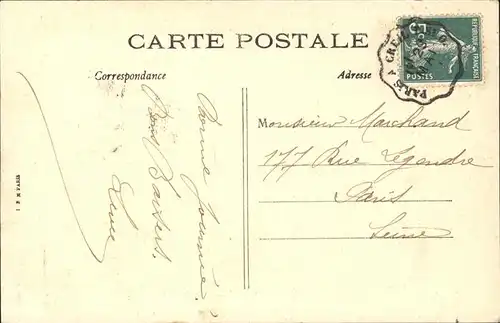 CARTE POSTALE
Correspondance
Adresse
Bonne Journée.
Bons Baisers.
Monsieur Marchand
177 Rue Legendre
Paris
Seine
REPUBLIQUE FRANÇAISE
POSTES
5
PARIS A CREIL